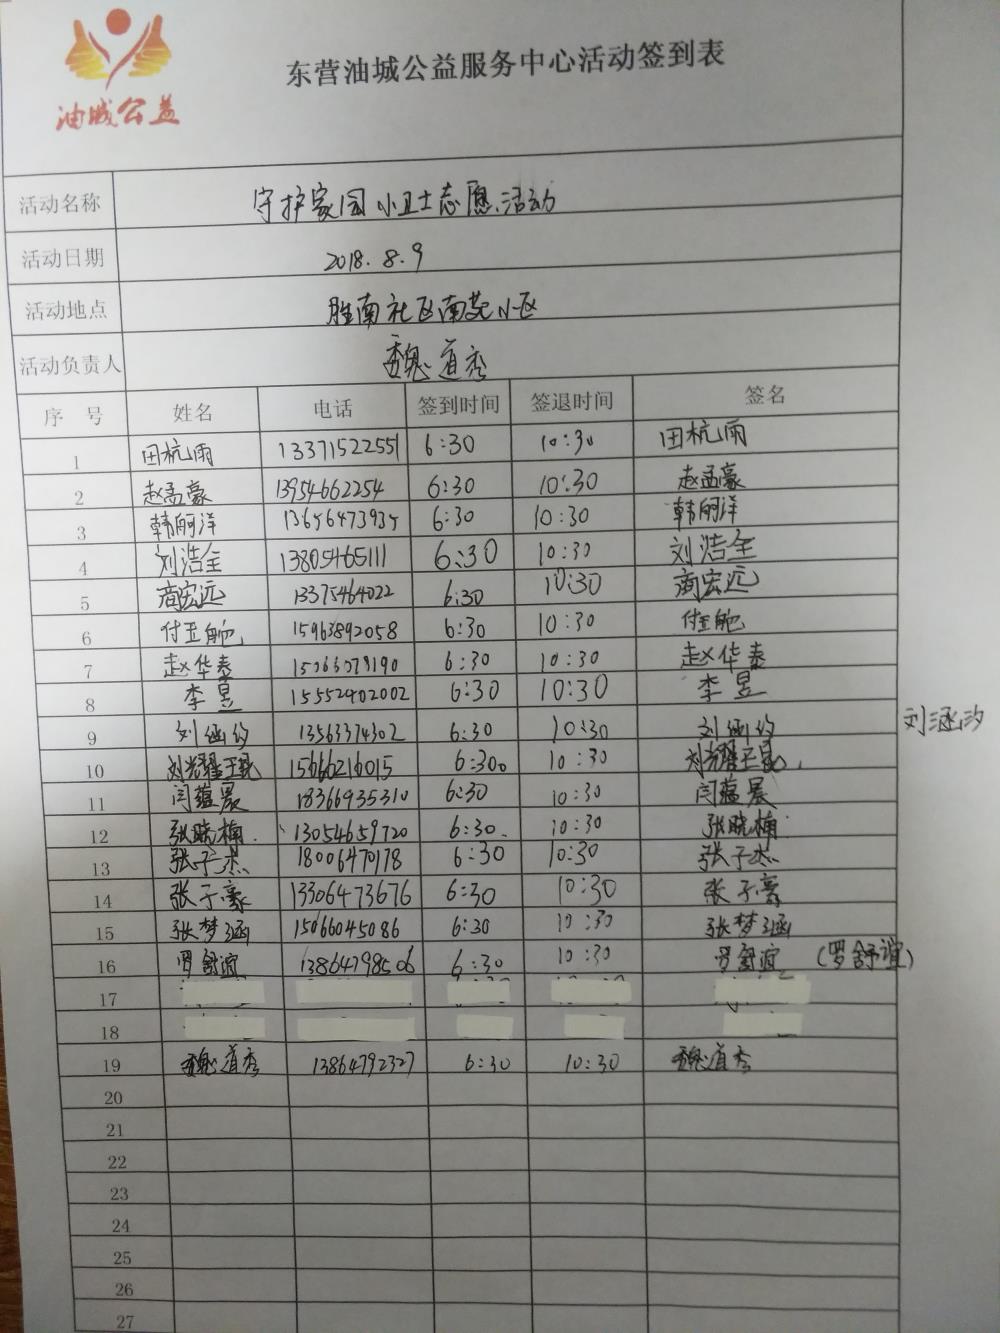 油城公益
东营油城公益服务中心活动签到表
活动名称 守护家园小卫士志愿活动
活动日期 2018.8.9
活动地点 胜南社区南苑小区
活动负责人 魏道秀
序号 姓名 电话 签到时间 签退时间 签名
1 田杭雨 13371522551 6:30 10:30 田杭雨
2 赵孟豪 13954662254 6:30 10:30 赵孟豪
3 韩丽洋 13656473935 6:30 10:30 韩丽洋
4 刘浩全 13805465111 6:30 10:30 刘浩全
5 商宏远 13375464022 6:30 10:30 商宏远
6 15963892058 6:30 10:30
7 赵华泰 6:30 10:30 赵华泰
8 李昱 15552402002 6:30 10:30 李昱
9 刘涵汐 13563374302 6:30 10:30 刘涵汐 刘涵汐
10 刘耀 15666216015 6:30 10:30 刘耀
11 闫蕴晨 18366935310 6:30 10:30 闫蕴晨
12 张晓楠 13054659720 6:30 10:30 张晓楠
13 张子杰 18006470178 6:30 10:30 张子杰
14 张子豪 13306473676 6:30 10:30 张子豪
15 张梦涵 15066045086 6:30 10:30 张梦涵
16 罗舒谊 13864798506 6:30 10:30 罗舒谊 (罗舒谊)
17
18
19 魏道秀 13864792327 6:30 10:30 魏道秀
20
21
22
23
24
25
26
27